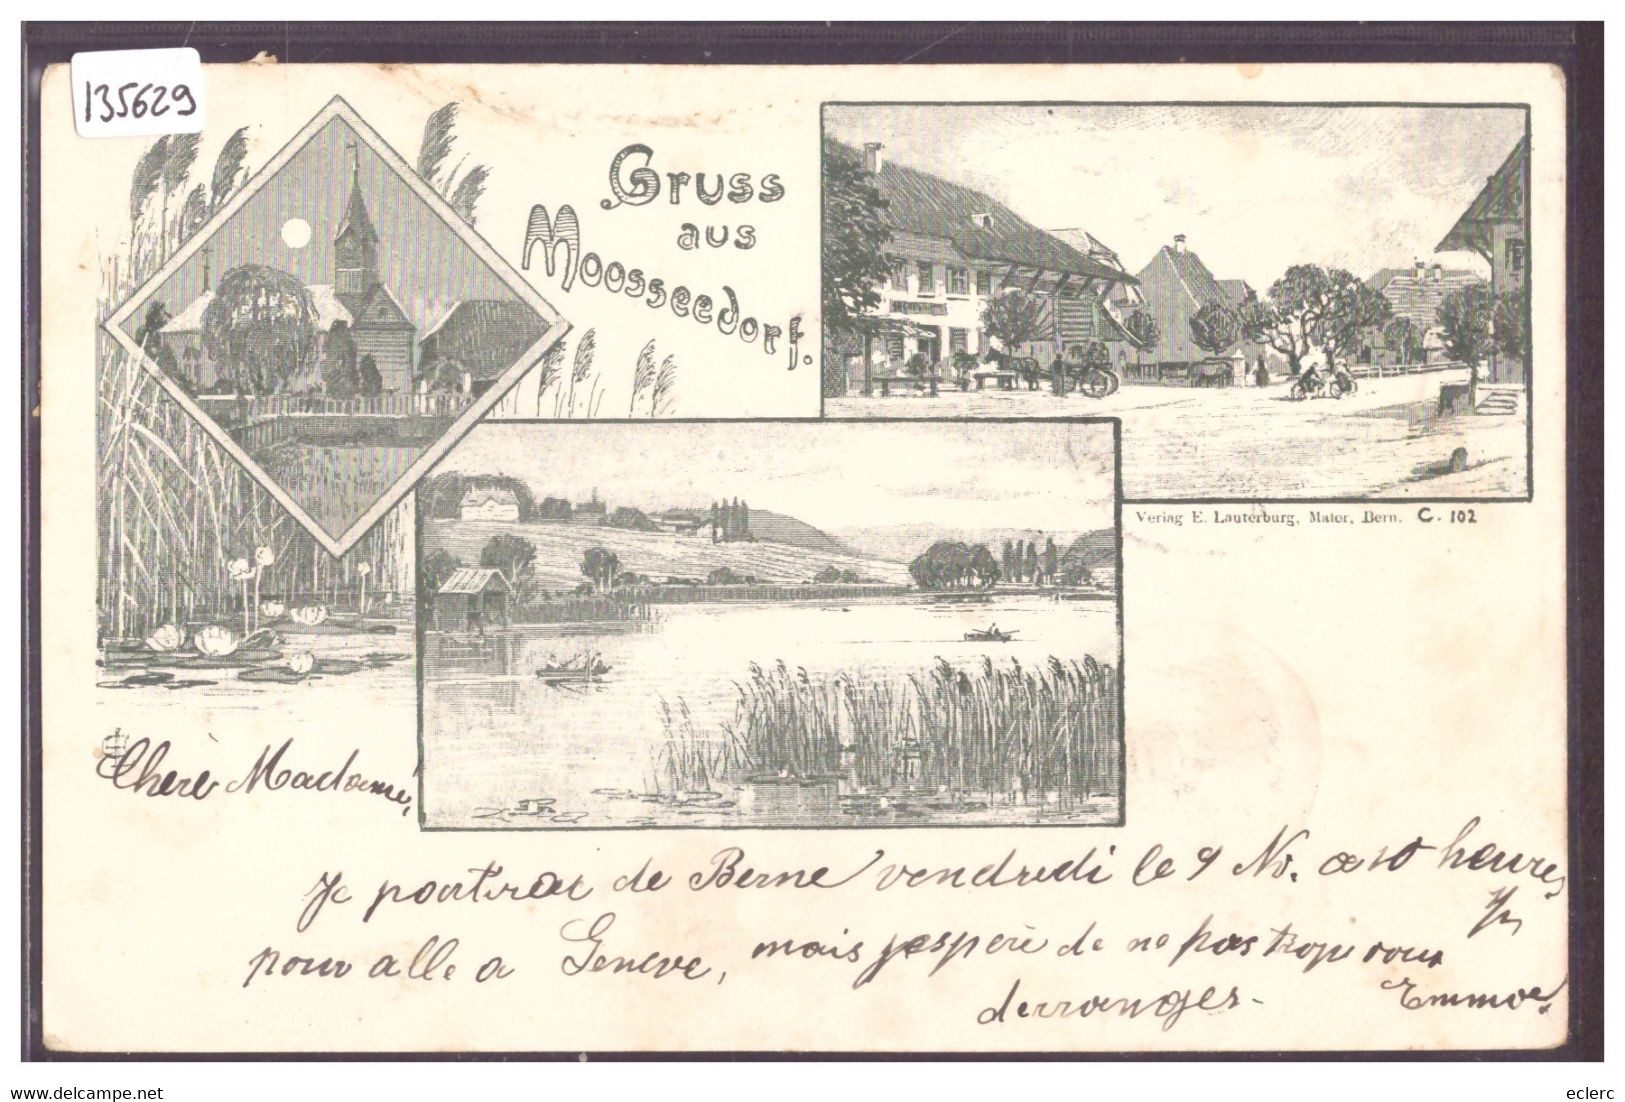 135629
Gruss
aus
Moosseedorf.
Verlag E. Lauterburg, Maler, Bern. C. 102
Chere Madame,
Je partirai de Berne vendredi le 9 Nv. a 10 heures
pour alle a Geneve, mais j'espere de ne pas trop vous
derranger.
Emma.
www.delcampe.net
eclerc